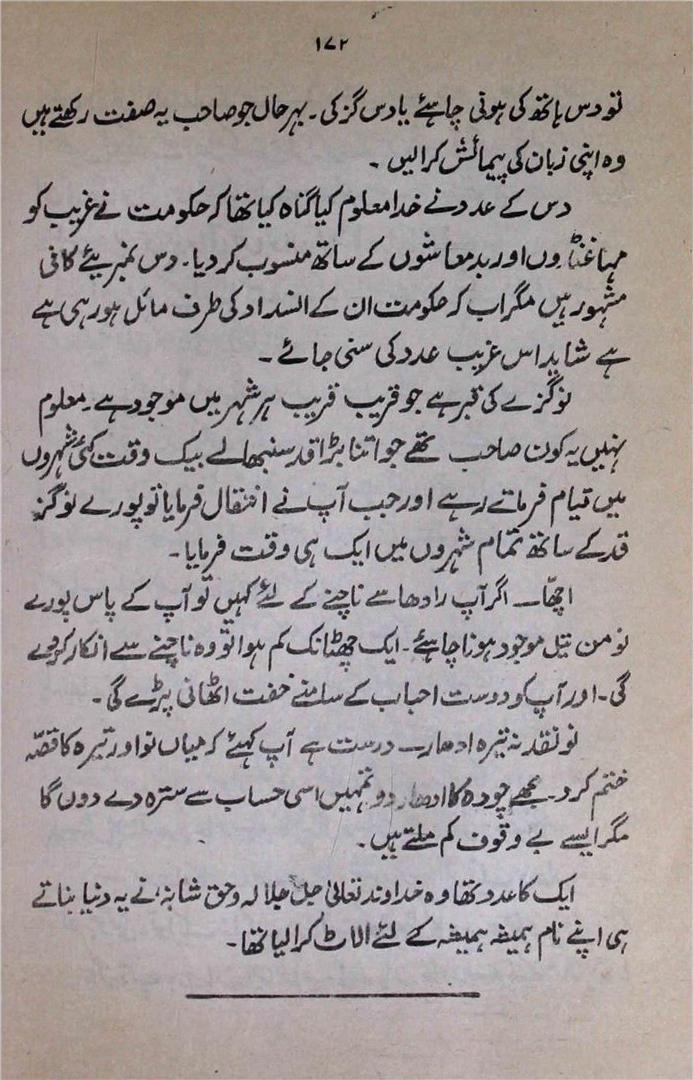 ۱۷۲
تو دس ہاتھ کی ہونی چاہئے یا دس گز کی۔ بہرحال جو صاحب یہ صفت رکھتے ہیں
وہ اپنی زبان کی پیمائش کرالیں ۔
دس کے عدد نے خدا معلوم کیا گناہ کیا تھا کہ حکومت نے غریب کو
مہا غنڈوں اور بدمعاشوں کے ساتھ منسوب کر دیا۔ دس نمبریئے کافی
مشہور ہیں مگر اب کہ حکومت ان کے انسداد کی طرف مائل ہو رہی ہے
ہے شاید اس غریب عدد کی سنی جائے ۔
نوگزے کی قبر ہے جو قریب قریب ہر شہر میں موجود ہے۔ معلوم
نہیں یہ کون صاحب تھے جو اتنا بڑا قد سنبھالے بیک وقت کئی شہروں
میں قیام فرماتے رہے اور جب آپ نے انتقال فرمایا تو پورے نو گز
قد کے ساتھ تمام شہروں میں ایک ہی وقت فرمایا۔
اچھا۔ اگر آپ رادھا سے ناچنے کے لئے کہیں تو آپ کے پاس پورے
نو من تیل موجود ہونا چاہئے۔ ایک چھٹانک کم ہوا تو وہ ناچنے سے انکار کر دے
گی۔ اور آپ کو دوست احباب کے سامنے خفت اٹھانی پڑے گی۔
نو نقد نہ تیرہ ادھار۔ درست ہے آپ کہئے کہ میاں نو اور تیرہ کا قصّہ
ختم کرد۔ مجھے چودہ کا ادھار دو تمہیں اسی حساب سے سترہ دے دوں گا
مگر ایسے بے وقوف کم ملتے ہیں۔
ایک کا عدد تھا وہ خداوند تعالیٰ جل جلالہ وحق شانہٗ نے یہ دنیا بناتے
ہی اپنے نام ہمیشہ ہمیشہ کے لئے الاٹ کرا لیا تھا۔